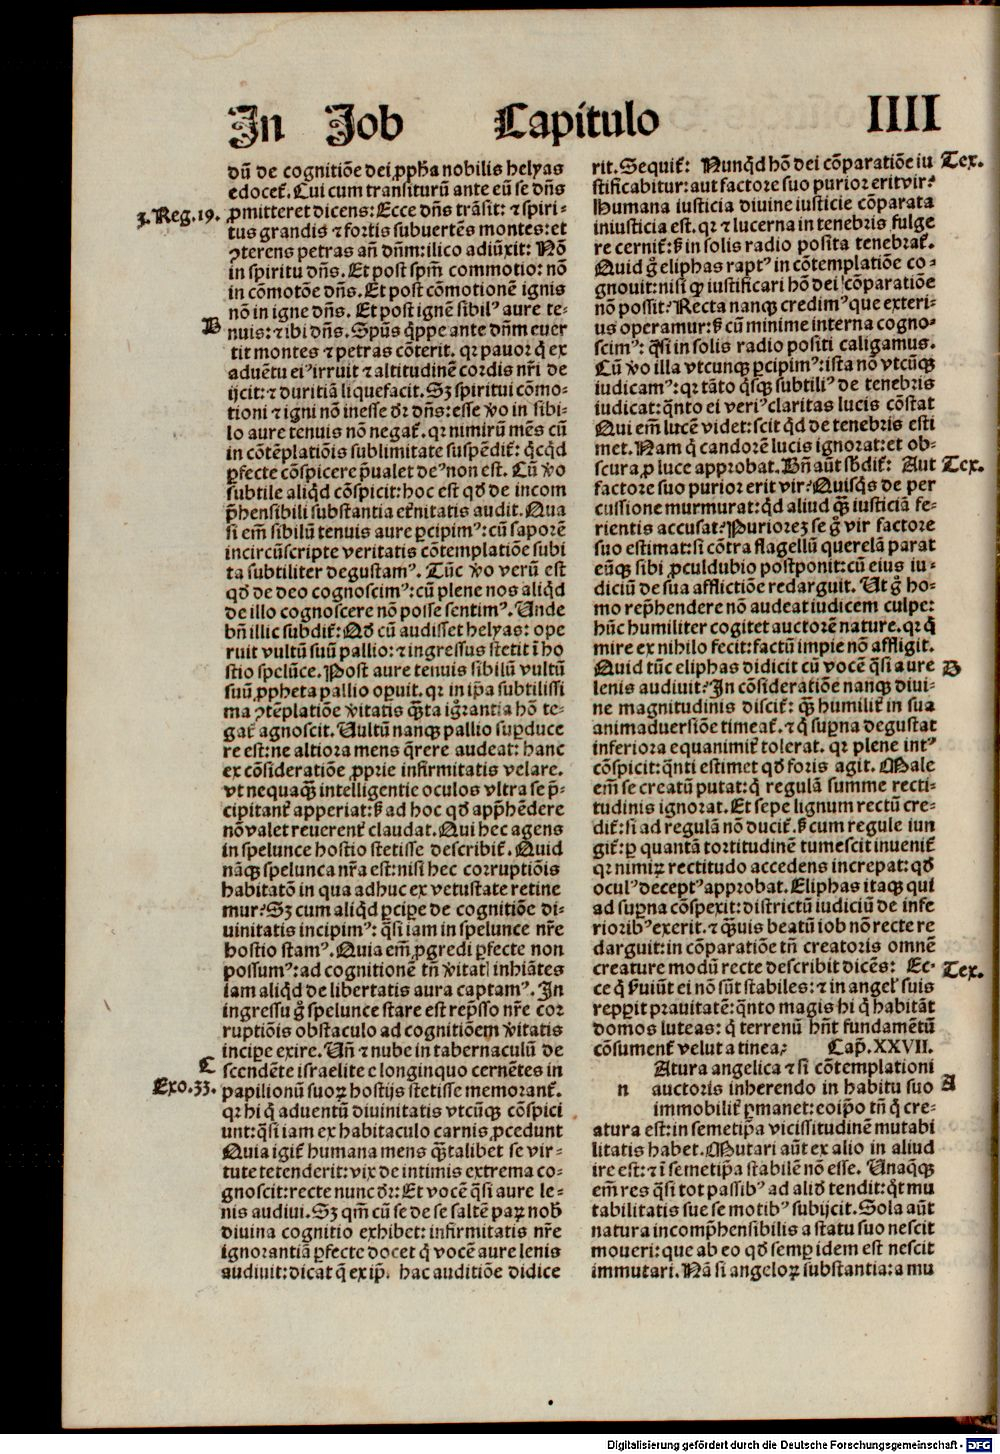 In Job Capitulo IIII
dū de cognitiōe dei ꝓpħa nobilis helyas
edocet᷑. Cui cum transiturū ante eū se dn̄s
3. Reg. 19.
ꝓmitteret dicens: Ecce dn̄s trāsit: ⁊ spiri⸗
tus grandis ⁊ fortis subuertēs montes: et
ꝯterens petras an̄ dn̄m: ilico adiūxit: Nō
in spiritu dn̄s. Et post spm̄ commotio: nō
in cōmotōe dn̄s. Et post cōmotionē ignis
nō in igne dn̄s. Et post ignē sibilꝰ aure te⸗
B
nuis: ⁊ ibi dn̄s. Spūs q̇ppe ante dn̄m euer
tit montes ⁊ petras cōterit. qr pauor q̇ ex
aduētu eiꝰ irruit ⁊ altitudinē cordis nr̄i de
ijcit: ⁊ duritiā liquefacit. Sꝫ spiritui cōmo⸗
tioni ⁊ igni nō inesse dr̄ dn̄s: esse v̄o in sibi⸗
lo aure tenuis nō negat᷑. qr nimirū mēs cū
in cōtēplatiōis sublimitate suspēdit᷑: q̇cq̇d
ꝑfecte cōspicere p̄ualet deꝰ non est. Cū v̄o
subtile aliq̇d cōspicit: hoc est qd̄ de incom
p̄hensibili substantia et̄nitatis audit. Qua
si em̄ sibilū tenuis aure ꝑcipimꝰ: cū saporē
incircūscripte veritatis cōtemplatiōe subi
ta subtiliter degustamꝰ. Tūc v̄o verū est
qd̄ de deo cognoscimꝰ: cū plene nos aliq̇d
de illo cognoscere nō posse sentimꝰ. Unde
bn̄ illic subdit᷑: Qd̄ cū audisset helyas: ope
ruit vultū suū pallio: ⁊ ingressus stetit ī ho
stio spelūce. Post aure tenuis sibilū vultū
suū ꝓpheta pallio oꝑuit. qr in ip̄a subtilissi
ma ꝯtēplatiōe v̄itatis q̄ta ig̊rantia hō te⸗
gat᷑ agnoscit. Uultū nanqꝫ pallio suꝑduce
re est: ne altiora mens q̄rere audeat: hanc
ex cōsideratiōe ꝓprie infirmitatis velare.
vt nequaqꝫ intelligentie oculos vltra se p̄⸗
cipitant᷑ apperiat: s̄ ad hoc qd̄ app̄hēdere
nō valet reuerent᷑ claudat. Qui hec agens
in spelunce hostio stetisse describit᷑. Quid
nāqꝫ spelunca nr̄a est: nisi hec corruptiōis
habitatō in qua adhuc ex vetustate retine
mur? Sꝫ cum aliq̇d ꝑciꝑe de cognitiōe di⸗
uinitatis incipimꝰ: q̄si iam in spelunce nr̄e
hostio stamꝰ. Quia em̄ ꝓgredi ꝑfecte non
possumꝰ: ad cognitionē tn̄ v̄itat inhiātes
iam aliq̇d de libertatis aura captamꝰ. In
ingressu g̊ spelunce stare est rep̄sso nr̄e cor
ruptiōis obstaculo ad cognitiōem v̄itatis
inciꝑe exire. Un̄ ⁊ nube in tabernaculū de
C
scendēte israelite e longinquo cernētes in
Exo. 33.
papilionū suoꝝ hostijs stetisse memorant᷑.
qr hi q̇ aduentū diuinitatis vtcūqꝫ cōspici
unt: q̄si iam ex habitaculo carnis ꝓcedunt
Quia igit᷑ humana mens q̄talibet se vir⸗
tute tetenderit: vix de intimis extrema co⸗
gnoscit: recte nunc dr̄: Et vocē q̄si aure le⸗
nis audiui. Sꝫ qm̄ cū se de se saltē paꝝ nob̄
diuina cognitio exhibet: infirmitatis nr̄e
ignorantiā ꝑfecte docet q̇ vocē aure lenis
audiuit: dicat q̄ ex ip̄. hac auditiōe didice
rit. Sequit᷑: Nunq̇d hō dei cōparatiōe iu
Tex.
stificabitur: aut factore suo purior erit vir?
Humana iusticia diuine iusticie cōparata
iniusticia est. qr ⁊ lucerna in tenebris fulge
re cernit᷑: s̄ in solis radio posita tenebrat᷑.
Quid g̊ eliphas raptꝰ in cōtemplatiōe co⸗
gnouit: nisi qꝫ iustificari hō dei cōparatiōe
nō possit? Recta nanqꝫ credimꝰ que exteri⸗
us operamur: s̄ cū minime interna cogno⸗
scimꝰ: q̄si in solis radio positi caligamus.
Cū v̄o illa vtcunqꝫ ꝑcipimꝰ: ista nō vtcūqꝫ
iudicamꝰ: qr tāto q̇sqꝫ subtiliꝰ de tenebris
iudicat: q̄nto ei veriꝰ claritas lucis cōstat
Qui em̄ lucē videt: scit q̇d de tenebris esti
met. Nam q̇ candorē lucis ignorat: et ob⸗
scura ꝓ luce approbat. Bn̄ aūt sb̄dit᷑: Aut
Tex.
factore suo purior erit vir? Quisq̇s de per
cussione murmurat: q̇d aliud qꝫ iusticiā fe⸗
rientis accusat? Purioreꝫ se g̊ vir factore
suo estimat: si cōtra flagellū querelā parat
eūqꝫ sibi ꝓculdubio postponit: cū eius iu⸗
diciū de sua afflictiōe redarguit. Ut g̊ ho⸗
mo rep̄hendere nō audeat iudicem culpe:
hūc humiliter cogitet auctorē nature. qr q̇
mire ex nihilo fecit: factū impie nō affligit.
Quid tūc eliphas didicit cū vocē q̄si aure
B
lenis audiuit? In cōsideratiōe nanqꝫ diui⸗
ne magnitudinis discit᷑: qꝫ humilit᷑ in sua
animaduersiōe timeat᷑. ⁊ q̇ suꝑna degustat
inferiora equanimit᷑ tolerat. qr plene intꝰ
cōspicit: q̄nti estimet qd̄ foris agit. Male
em̄ se creatū putat: q̇ regulā summe recti⸗
tudinis ignorat. Et sepe lignum rectū cre⸗
dit᷑: si ad regulā nō ducit᷑. s̄ cum regule iun
git᷑: ꝑ quantā tortitudinē tumescit inuenit᷑
qr nimiꝝ rectitudo accedens increpat: qd̄
oculꝰ deceptꝰ approbat. Eliphas itaqꝫ qui
ad suꝑna cōspexit: districtū iudiciū de infe
rioribꝰ exerit. ⁊ qꝫuis beatū iob nō recte re
darguit: in cōparatiōe tn̄ creatoris omnē
creature modū recte describit dicēs: Ec⸗
Tex.
ce q̇ s̄uiūt ei nō sūt stabiles: ⁊ in angel suis
repꝑit prauitatē: q̄nto magis hi q̇ habitāt
domos luteas: q̇ terrenū hn̄t fundamētū
cōsument᷑ velut a tinea? Cap̄. XXVII.
Atura angelica ⁊ si cōtemplationi
n auctoris inherendo in habitu suo
A
immobilit᷑ ꝑmanet: eoip̄o tn̄ q̇ cre⸗
atura est: in semetip̄a vicissitudinē mutabi
litatis habet. Mutari aūt ex alio in aliud
ire est: ⁊ ī semetip̄a stabilē nō esse. Unaq̄qꝫ
em̄ res q̄si tot passibꝰ ad aliđ tendit: q̄t mu
tabilitatis sue se motibꝰ subijcit. Sola aūt
natura incomp̄hensibilis a statu suo nescit
moueri: que ab eo qd̄ semꝑ idem est nescit
immutari. Nā si angeloꝝ substantia: a mu
Digitalisierung gefördert durch die Deutsche Forschungsgemeinschaft - DFG